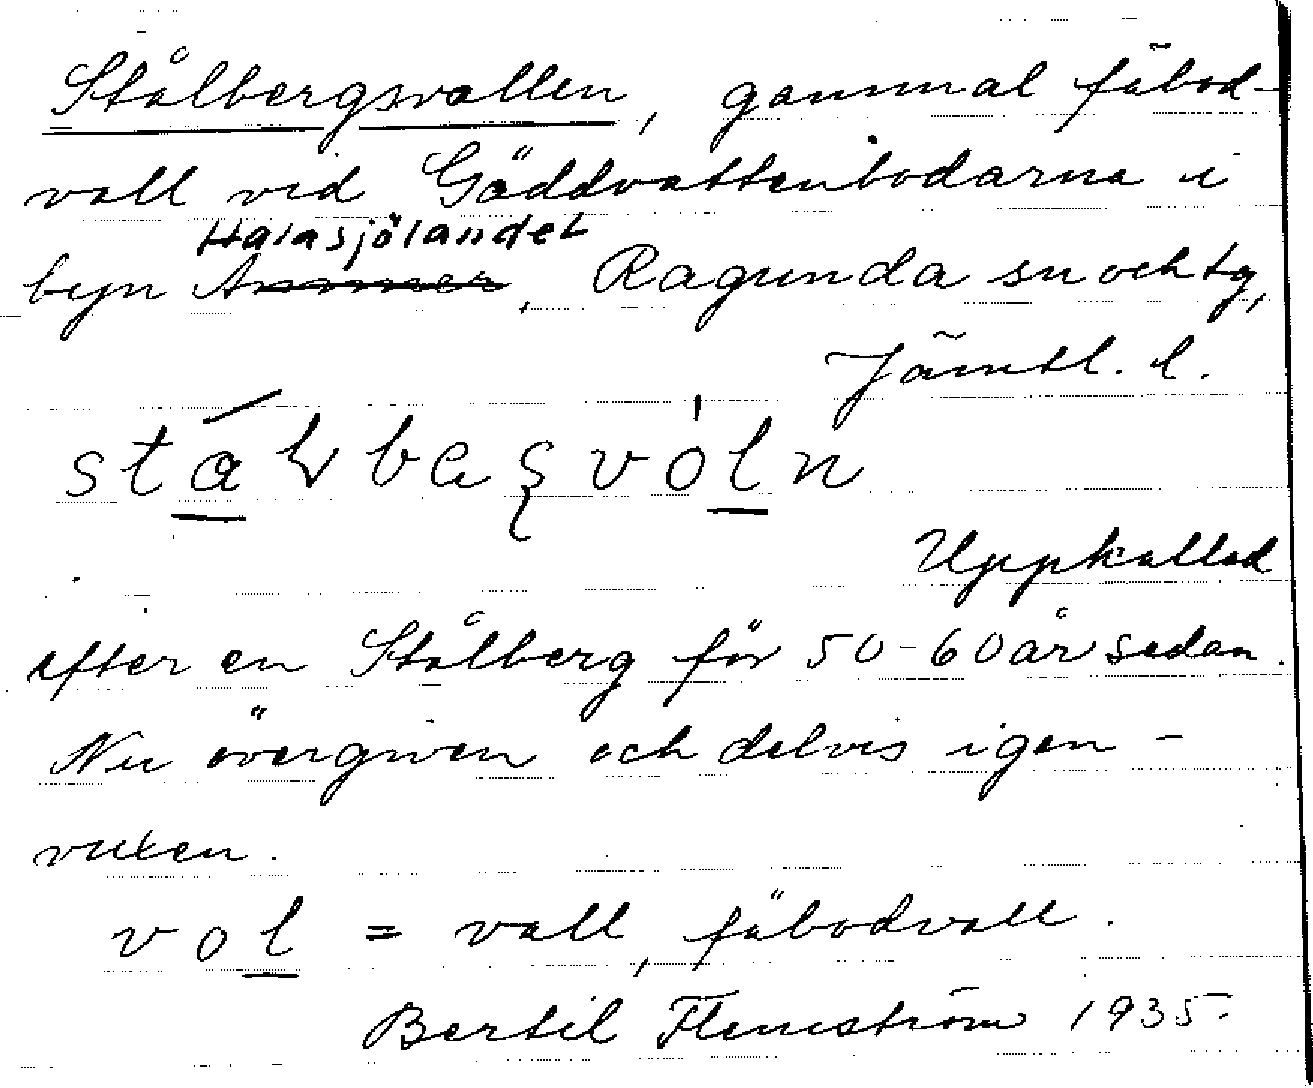 Stålbergsvallen, gammal fäbod-
vall vid Gäddvattenbodarna i
Halasjölandet
byn Ammer, Ragunda sn och tg,
Jämtl. l.
Uppkallad
efter en Stålberg för 50-60 år sedan.
Nu övergiven och delvis igen-
vuxen.
vol = vall, fäbodvall.
Bertil Flemström 1935.